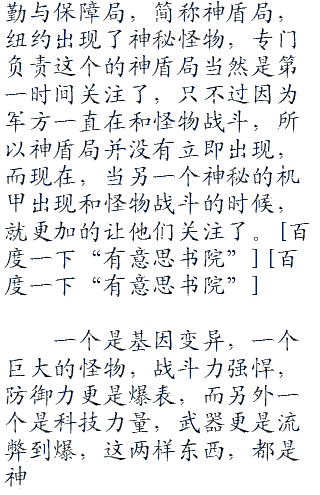 勤与保障局，简称神盾局，
纽约出现了神秘怪物，专门
负责这个的神盾局当然是第
一时间关注了，只不过因为
军方一直在和怪物战斗，所
以神盾局并没有立即出现，
而现在，当另一个神秘的机
甲出现和怪物战斗的时候，
就更加的让他们关注了。[百
度一下“有意思书院”][百
度一下“有意思书院”]
一个是基因变异，一个
巨大的怪物，战斗力强悍，
防御力更是爆表，而另外一
个是科技力量，武器更是流
弊到爆，这两样东西，都是
神